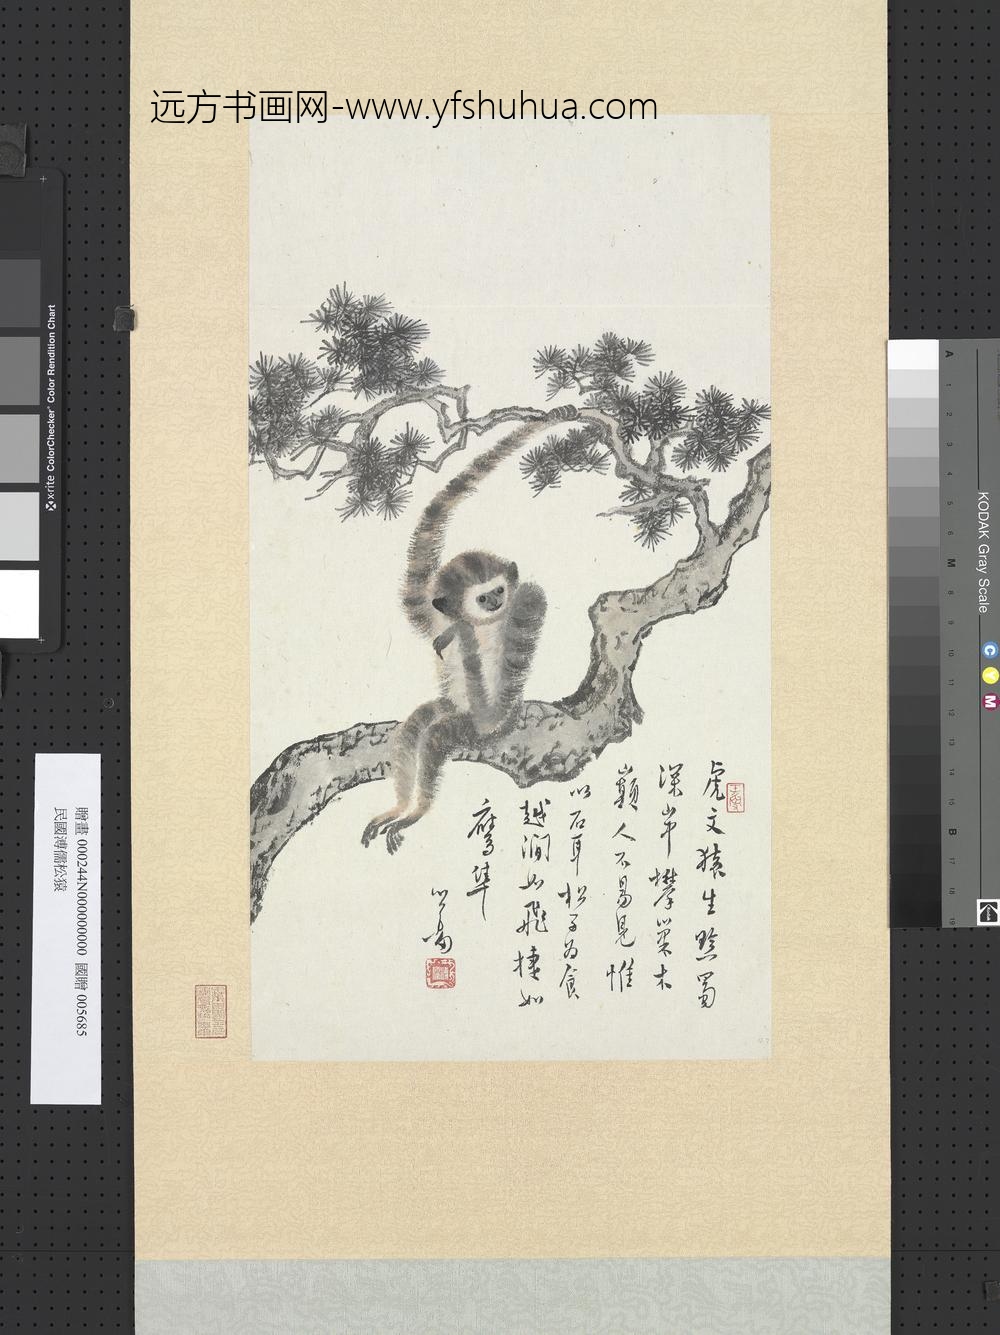 远方书画网-www.yfshuhua.com
虎文猿生黔蜀
深山中攀巢木
巔人不易見惟
以石耳松子為食
越澗如飛捷如
鷹隼
心畬
贈畫 000244N000000000 國贈 005685
民國溥儒松猿
x-rite ColorChecker® Color Rendition Chart
KODAK Gray Scale
A 1 2 3 4 5 6 M 8 9 10 11 12 13 14 15 B 17 18 19
C
Y
M
Kodak